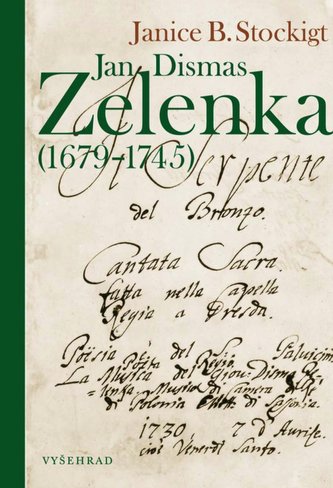 Janice B. Stockigt
Jan Dismas
Zelenka
(1679–1745)
Il Serpente
del Bronzo.
Cantata Sacra.
fatta nella Capella
Regia a Dresda.
Poësia del
La Musica del Dismas
Musico di Camera
di Polonia di Sassonia.
1730 7 d'Aprile
cioè Venerdi Santo.
VYŠEHRAD